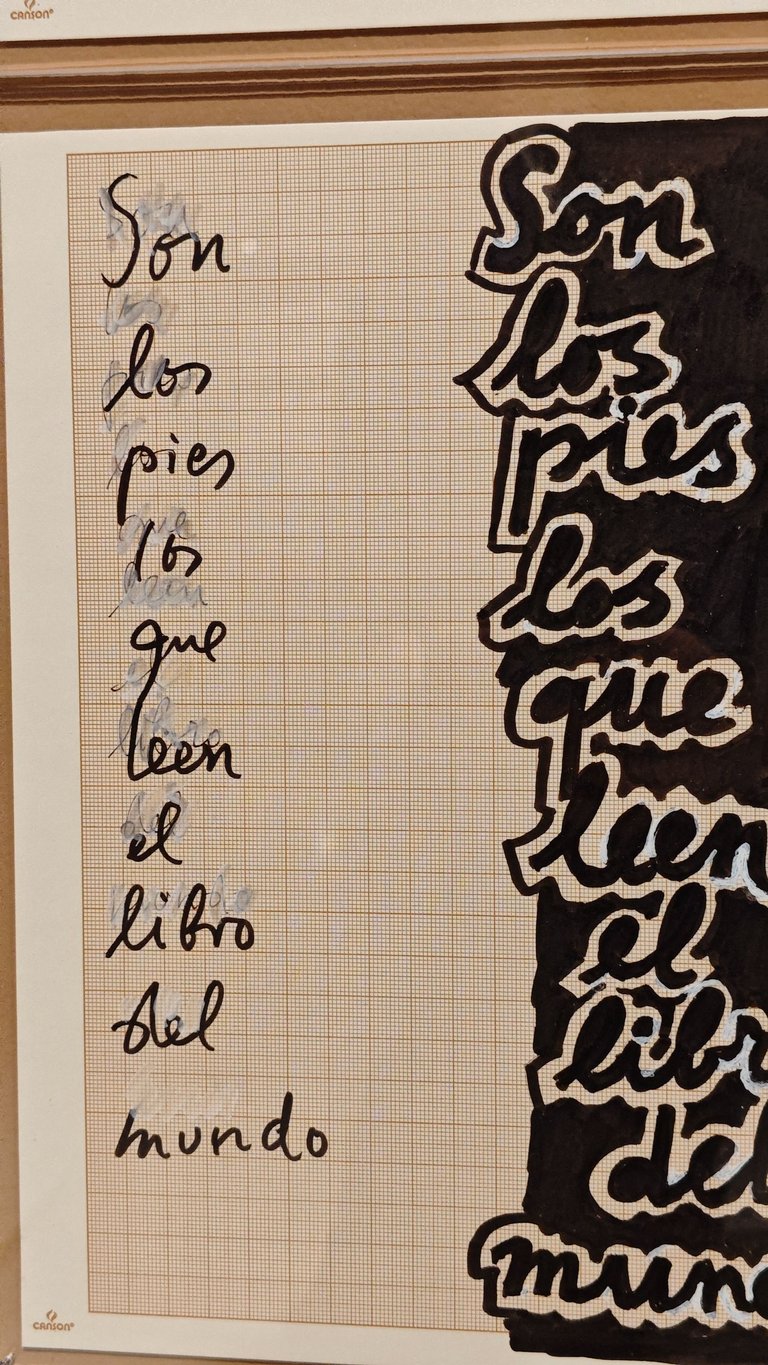 CANSON®
Son
los
pies
los
que
leen
el
libro
del
mundo
Son
los
pies
los
que
leen
el
libr
del
mund
CANSON®